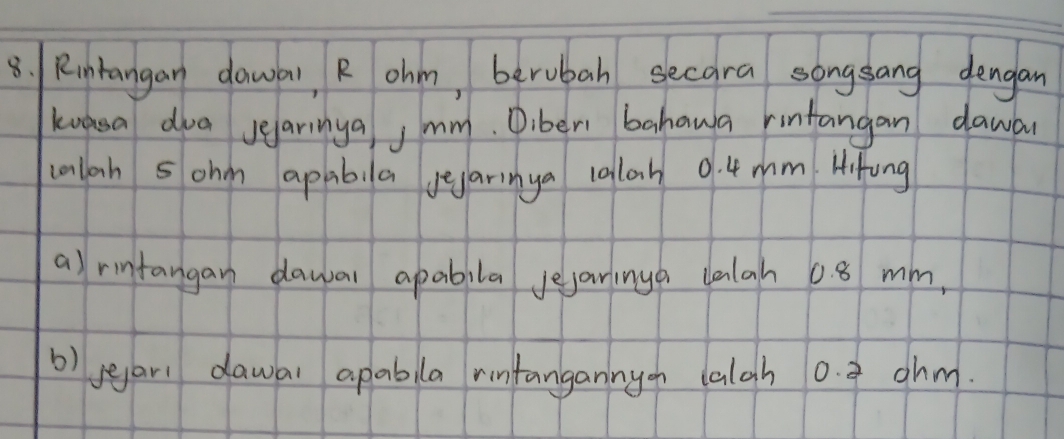 8. Rintangan dawai, R ohm, berubah secara songsang dengan
kuasa dua jejarinya, j mm. Diberi bahawa rintangan dawai
ialah 5 ohm apabila jejarinya ialah 0.4 mm. Hitung
a) rintangan dawai apabila jejarinya ialah 0.8 mm,
b) jejari dawai apabila rintangannya ialah 0.2 ohm.